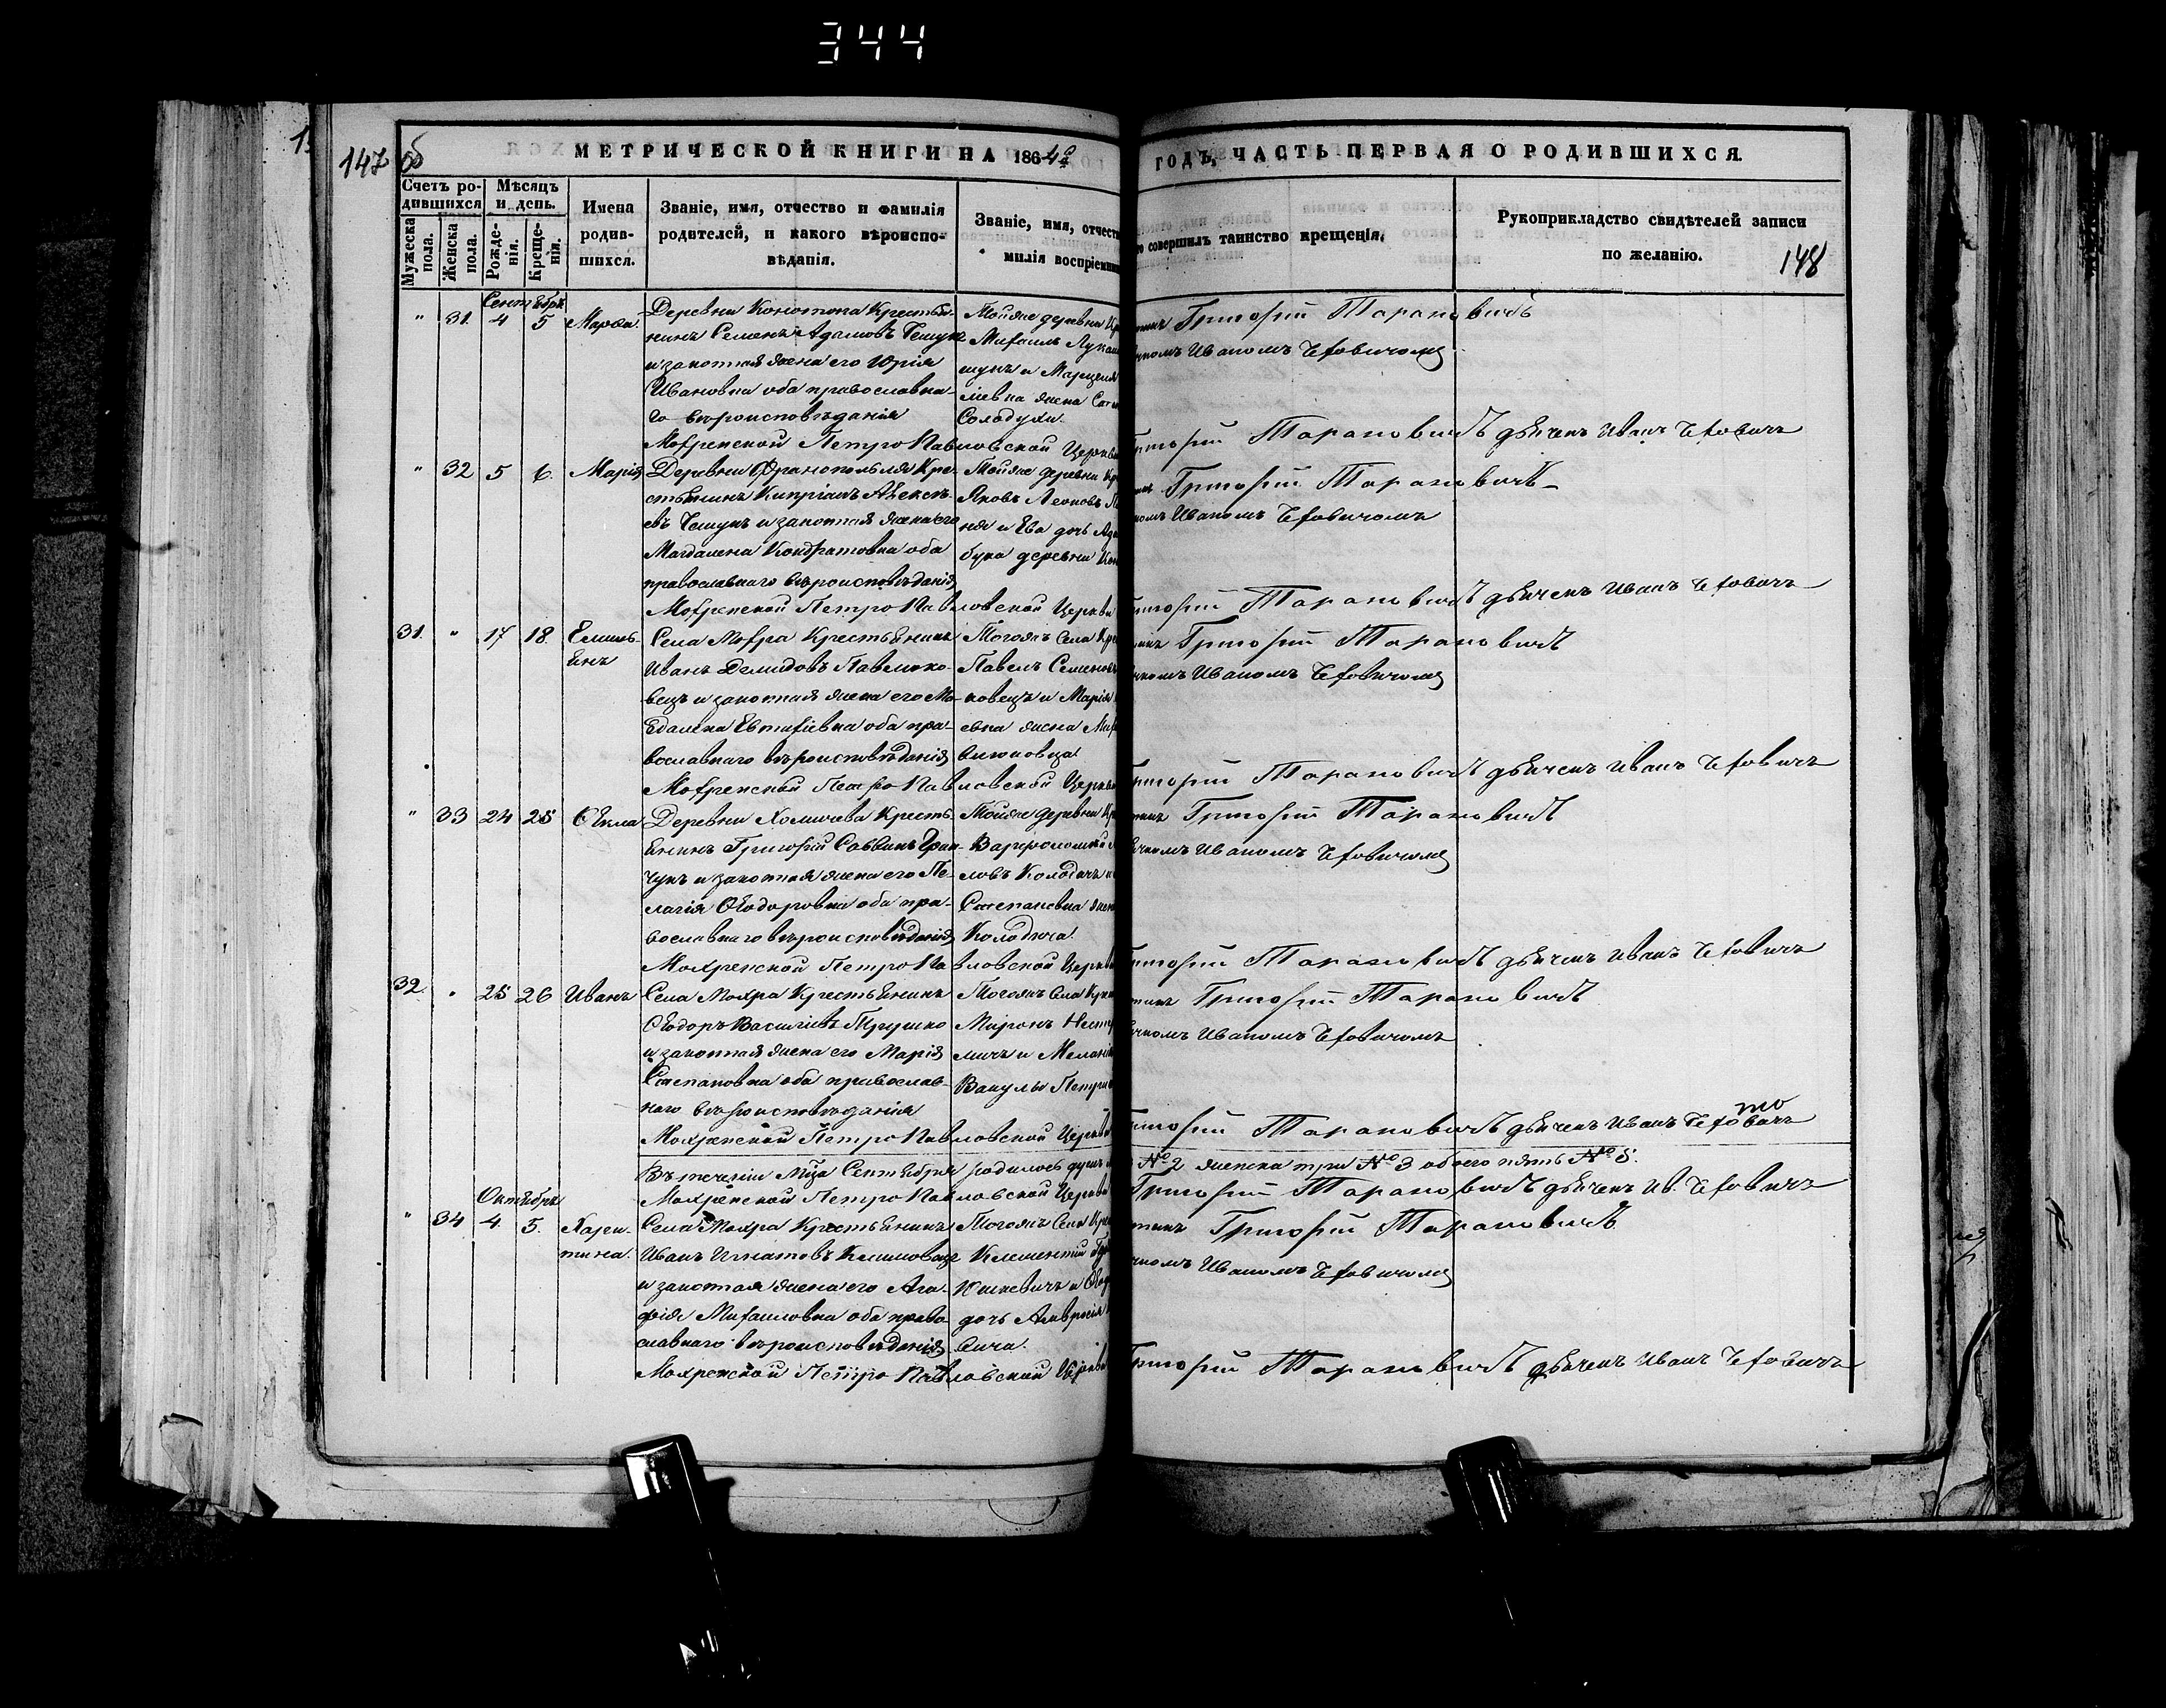 344
147 об
МЕТРИЧЕСКОЙ КНИГИ НА 1864й
ГОДЪ, ЧАСТЬ ПЕРВАЯ О РОДИВШИХСЯ.
148
Счетъ родившихся
Мужеска пола.
Женска пола.
Мѣсяцъ и день.
Рожденія.
Крещенія.
Имена родившихся.
Званіе, имя, отчество и фамилія
родителей, и какого вѣроиспо-
вѣданія.
Званіе, имя, отчест
милія воспріемни
совершилъ таинство крещенія.
Рукоприкладство свидѣтелей записи
по желанію.
Сентябрь
" 31. 4 5 Марѳа.
Деревни Конотопа Крестья-
нинъ Семенъ Адамовъ Чешукъ
и законная жена его Юрія
Ивановна оба православна-
го вѣроисповѣданія
Тойже деревни
Михаилъ
шукъ и
жена
Солодухи.
Григорій Тарановичъ
Иваномъ Чеховичомъ
Мохренской Петро Павловской Церкви
Григорій Тарановичъ дьячекъ Иванъ Чеховичъ
" 32 5 6. Марія
Деревни Франополья Кре-
стьянинъ Кипріанъ Алексѣ-
евъ Чешукъ и законная жена его
Магдалена Кондратовна оба
православнаго вѣроисповѣданія
Тойже деревни
Яковъ Леоновъ
и Ева дочь
бука деревни
Григорій Тарановичъ
Иваномъ Чеховичомъ
Мохренской Петро Павловской Церкви
Григорій Тарановичъ дьячекъ Иванъ Чеховичъ
31. " 17 18. Емиль-
янъ
Села Мохра Крестьянинъ
Иванъ Демидовъ Павлюко-
вецъ и законная жена его Ма-
гдалена Евтихіевна оба пра-
вославнаго вѣроисповѣданія
Тогожъ Села
Павелъ Семеновъ
ковецъ и Марія
евна жена
Григорій Тарановичъ
Иваномъ Чеховичомъ
Мохренской Петро Павловской Церкви
Григорій Тарановичъ дьячекъ Иванъ Чеховичъ
" 33 24 25 Ѳекла
Деревни Хомичева Кресть-
янинъ Григорій Саввинъ Грин-
чукъ и законная жена его Пе-
лагія Ѳеодоровна оба пра-
вославнаго вѣроисповѣданія
Тойже деревни
Варѳоломей
ловъ Колодичъ и
Степановна жена
Колодича.
Григорій Тарановичъ
Иваномъ Чеховичомъ
Мохренской Петро Павловской Церкви
Григорій Тарановичъ дьячекъ Иванъ Чеховичъ
32. " 25 26 Иванъ
Села Мохра Крестьянинъ
Ѳеодоръ Василіевъ
и законная жена его Марія
Степановна оба православ-
наго вѣроисповѣданія
Тогожъ Села
Миронъ
и Меланія
Вакулы
Григорій Тарановичъ
Иваномъ Чеховичомъ
Мохренской Петро Павловской Церкви
Григорій Тарановичъ дьячекъ Иванъ Чеховичъ
то
Въ теченіи Мца Сентября родилось душъ
№ 2 женска три № 3 обоего пять № 5.
Мохренской Петро Павловской Церкви
Григорій Тарановичъ дьячекъ Ив. Чеховичъ
Октябрь
" 34 4. 5. Хари-
тина.
Села Мохра Крестьянинъ
Иванъ Игнатовъ Климовецъ
и законная жена его Ага-
фія Михаиловна оба право-
славнаго вѣроисповѣданія
Тогожъ Села
Климентій
и
дочь Амвросія
Григорій Тарановичъ
Иваномъ Чеховичомъ
Мохренской Петро Павловской Церкви
Григорій Тарановичъ дьячекъ Иванъ Чеховичъ